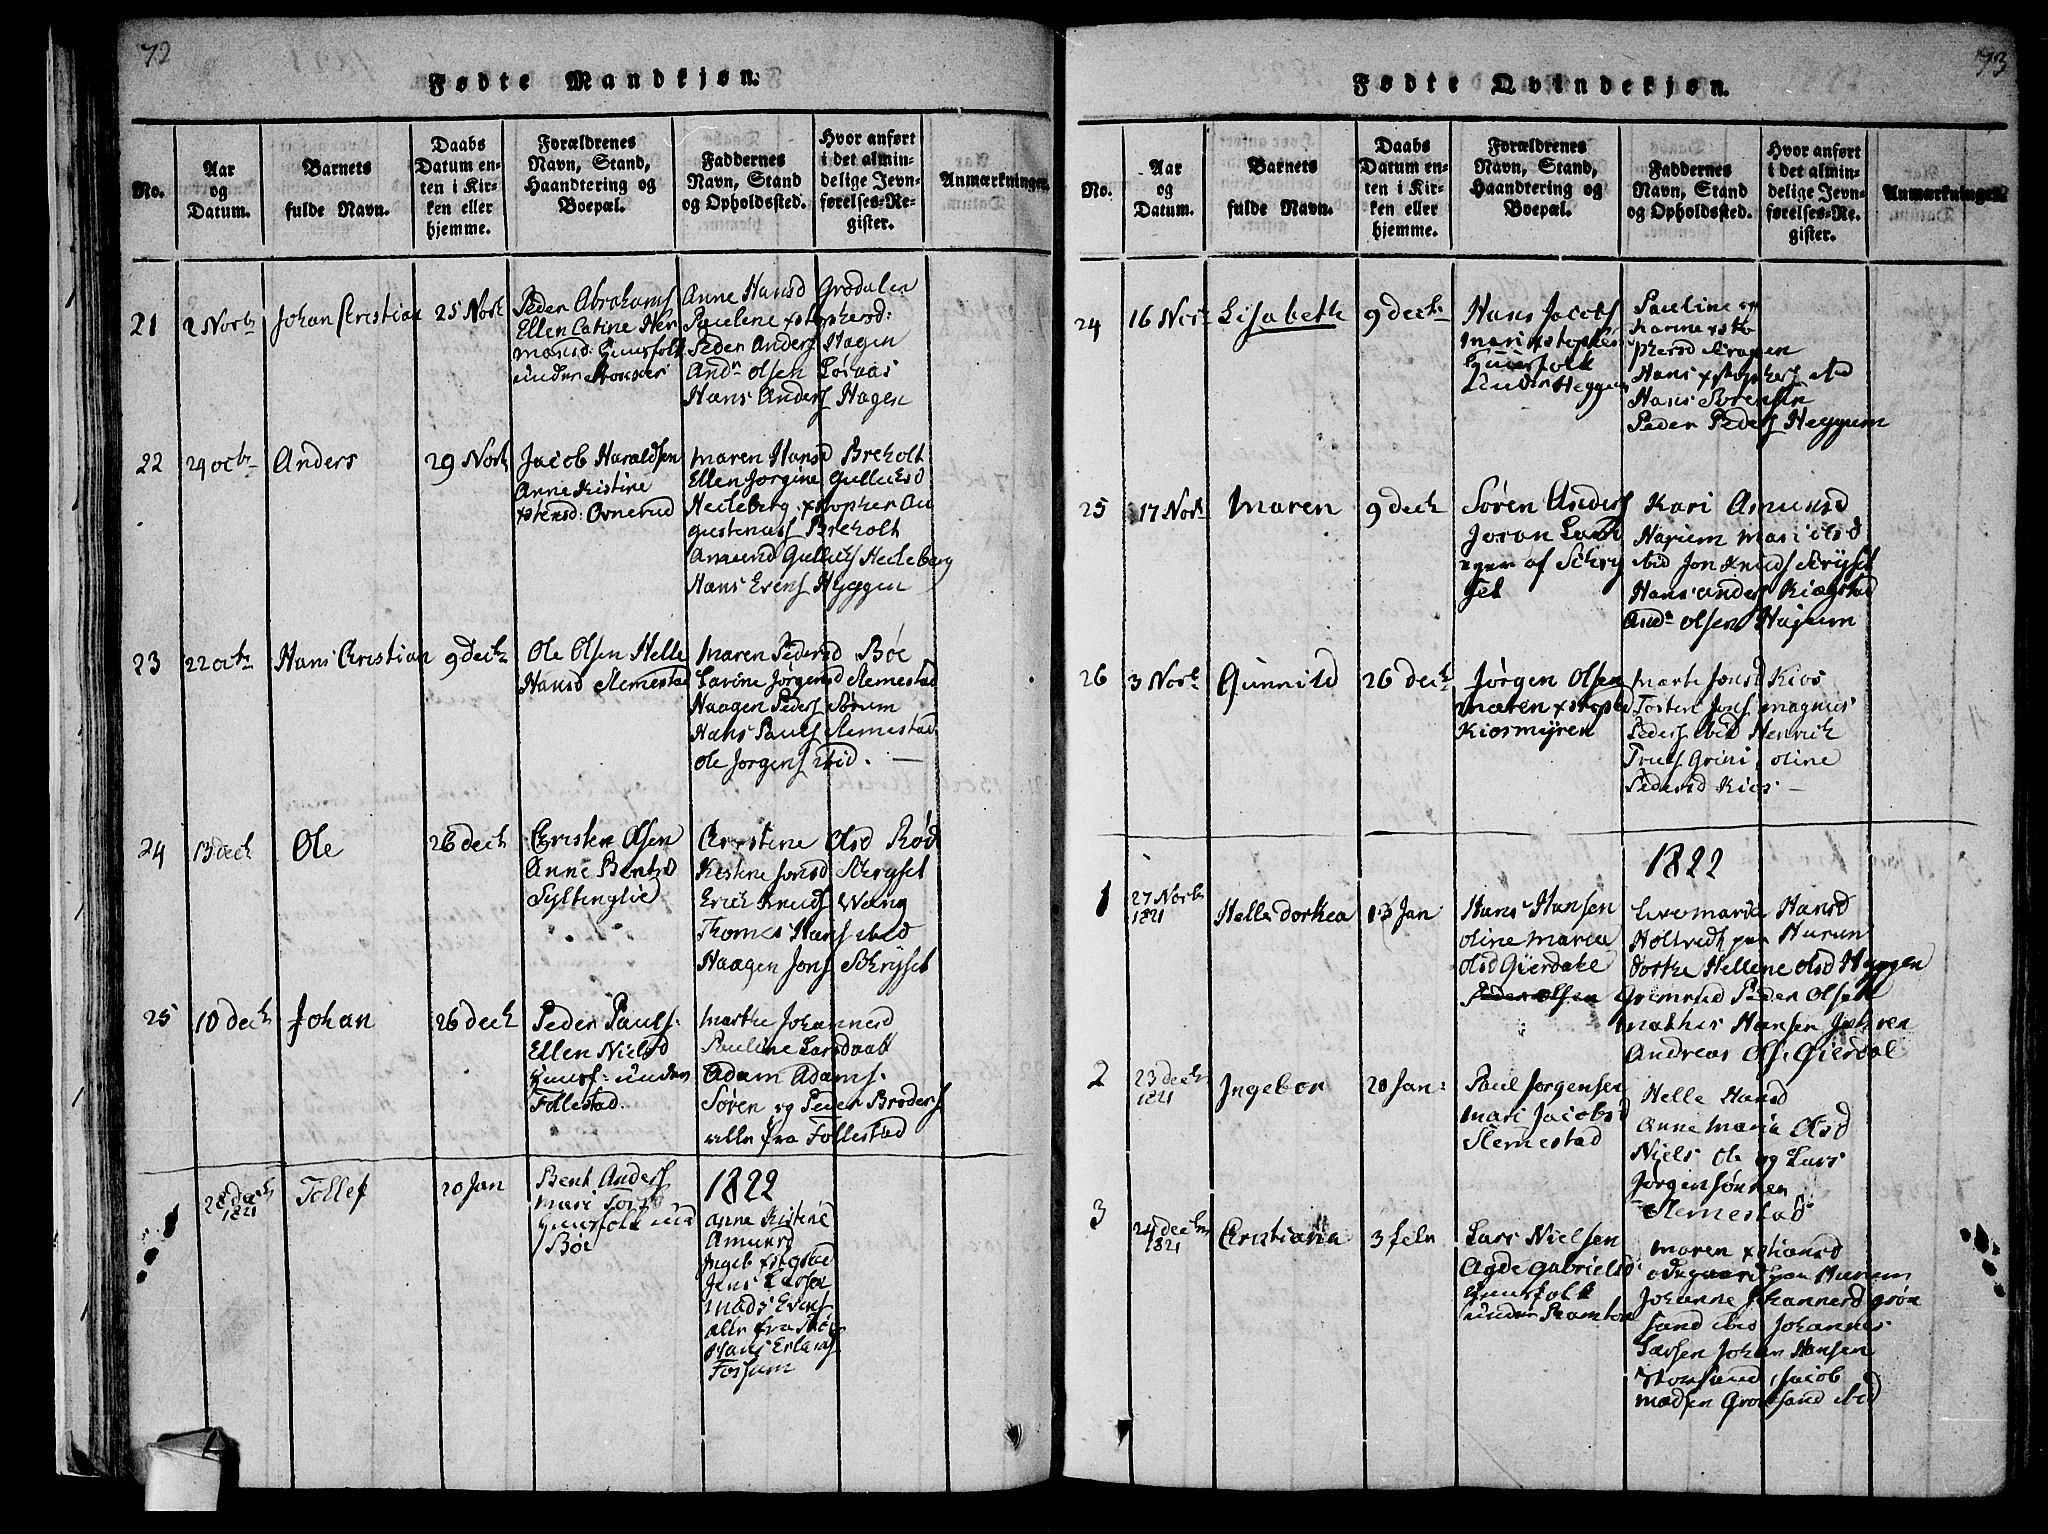 72
Fødte Mandkjøn.
No.
Aar
og
Datum.
Barnets
fulde Navn.
Daabs
Datum en-
ten i Kir-
ken eller
hjemme.
Forældrenes
Navn, Stand,
Haandtering og
Boepæl.
Faddernes
Navn, Stand
og Opholdssted.
Hvor anført
i det almin-
delige Jevn-
førelses-Re-
gister.
Anmærkninger.
21
2 Novbr
Johan Cristian
25 Novb
Peder Abrahams
Ellen Catine Her
mansd: Huusfolk
under
Anne Hansd Grødalen
Paulene xstophersd:
Peder Anders Hagen
Andr Olsen Løraas
Hans Anders Hagen
22
29 octbr
Anders
29 Novb
Jacob Haraldsen
Anne Kistine
xstensd: Ovnerud
Maren Hansd Breholt
Ellen Jorgine Gulliksd
Hedeberg xstopher Au
gustenusf Breholt
Amund Gulliksf Hedeberg
Hans Evensf Hyggen
23
22 octbr
Hans Cristian
9 decbr
Ole Olsen Helle
Hansd Slemestad
Maren Pedersd Bøe
Lavine Jørgensd Slemestad
Haagen Pedersf Sørum
Hans Paulsf Slemestad
Ole Jorgensf ibid. —
24
13 decb
Ole
26 decb
Cristen Olsen
Anne Bentsd
Syltinglie
Cristine Olsd Rød
Kistine Jonsd Skryset
Erich Knudsf Wang
Thomes Hansf ibid
Haagen Jonsf Skryset
25
10 decb
Johan
26 decb
Peder Paulsf.
Ellen Nielsd
Huusf. under
Follestad.
Marthe Johannesd
Pauline Larsd
Adam Adamsf.
Søren og Peder Brodersf
alle fra Follestad
1822
1
28 decb
1821
Tollef
20 Jan
Bent Andersf
Mari
Huusfolk und
Bøe
Anne Kistine
Amunsd
Jens Larsen
Mads Evensf
alle fra Bøe
Hans Erlansf
Fossum
73
Fødte Qvindekjøn.
No.
Aar
og
Datum.
Barnets
fulde Navn.
Daabs
Datum en-
ten i Kir-
ken eller
hjemme.
Forældrenes
Navn, Stand,
Haandtering og
Boepæl.
Faddernes
Navn, Stand
og Opholdssted.
Hvor anført
i det almin-
delige Jevn-
førelses-Re-
gister.
Anmærkninger.
24
16 Novb
Lisabeth
9 decbr
Hans Jacobsf
Mari xstophers
Huusfolk
under Heggum
Pauline og
Karine xsto
phersd
Hans xstophersf ibid
Hans Sørensen
Peder Pedersf Heggum
25
17 Novb
Maren
9 decb
Søren Andersf
Joran
eger af Skry
set
Kari Amunsd
Hajum Mari Olsd
ibid Jon Knudsf Skryset
Hans Andersf Kiægstad
Andr Olsen Hajum
26
3 Novb
Gunnild
26 decb
Jørgen Olsen
Maren xstophe
Kiosmyren
Marte Jonsd Kios
Tosten Jonsf Magnus
Pedersf ibid Henrich
Truls Grini, Oline
Pedersd Kios —
1822
1
27 Novbr
1821
Helle Dorthea
13 Jan
Hans Hansen
Oline Maria
Olsd Gierdahl
Peder Olsen
Live Maria Hansd
Holtvedt paa Hurum
Dorthe Hellene Olsd Hyggen
Grimsrud Peder Olsen
Mathis Hansen
Andreas Olsf Gierdal
2
23 decb
1821
Ingebor
20 Jan:
Paul Jorgensen
Mari Jacobsd
Slemestad
Helle Hansd
Anne Maria Olsd
Niels Ole og Lars
Jorgensønner
Slemestad
3
24 decb
1821
Cristiana
3 febr
Lars Nielsen
Agde Gabrielsd
Huusfolk
under Ramton
Maren xstiansd
Odegaard paa Hurum
Johanne Johannesd Grøn
sand ibid Johannes
Larsen Johan Hansen
Storsand, Jacob
Madsen Gronsand ibid